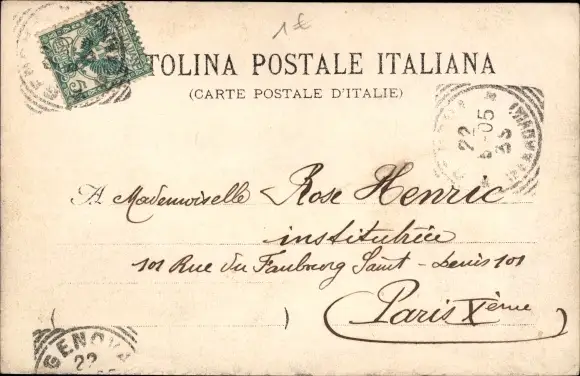 1€
5
TOLINA POSTALE ITALIANA
(CARTE POSTALE D'ITALIE)
22
05
A Mademoiselle Rose Henric
institutrice
101 Rue du Faubourg Saint-Denis 101
Paris Xème
GENOVA
22